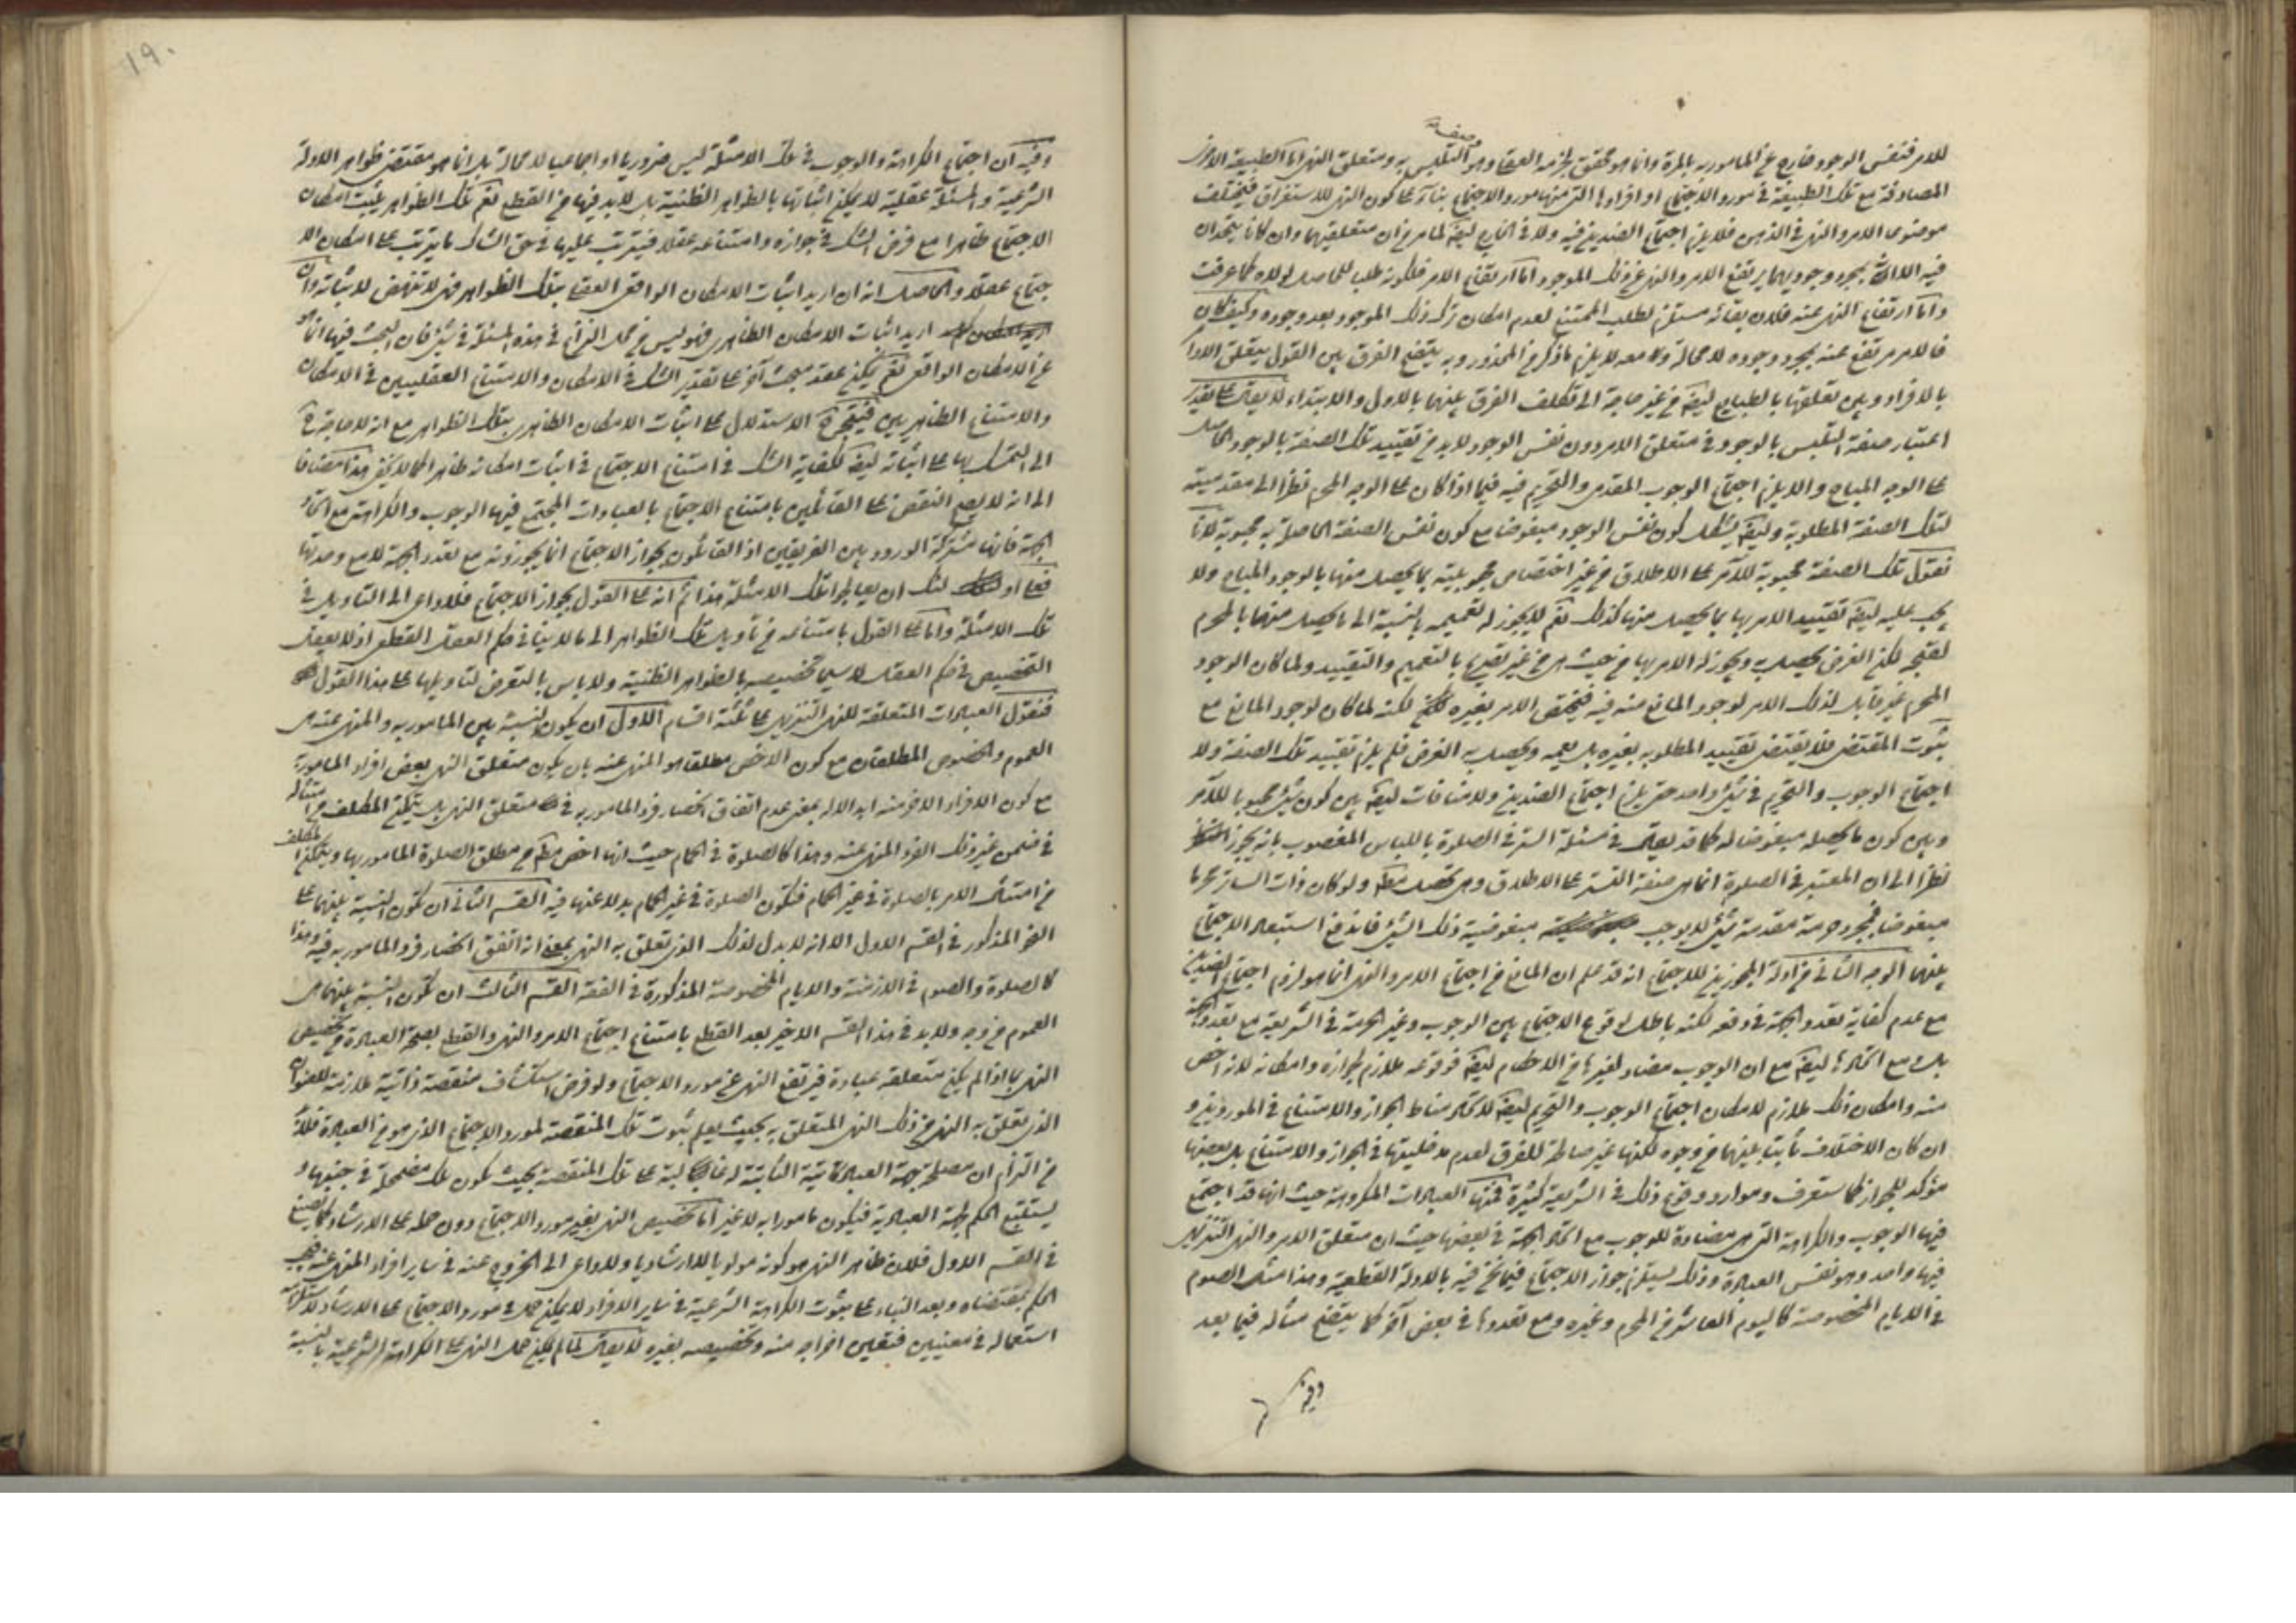 للامر فنفس الوجود خارج عن المامور به بالمرة وانما هو محقق لجزئه العقلي وهو صفة التلبس به ومتعلق النهي اما الطبيعة الاخرى
المصادقة مع تلك الطبيعة في مورد الاجتماع او افرادها التي منها مورد الاجتماع بناء على كون النهي للاستغراق فيختلف
موضوعي الامر والنهي في الذهن فلا يلزم اجتماع الضدين فيه ولا في الخارج ايضا لما مر من ان متعلقيهما وان كانا يتحدان
فيه الا انه بمجرد وجوديهما يرتفع الامر والنهي عن ذلك الموجود اما ارتفاع الامر فلكونه طلب للحاصل لولاه كما عرفت
واما ارتفاع النهي عنه فلان بقائه مستلزم لطلب الممتنع لعدم امكان ترك ذلك الموجود بعد وجوده وكيف كان
فالامر مرتفع عنه بمجرد وجوده لا محالة ومعه لا يلزم ما ذكر من المحذور وبه يتضح الفرق بين القول بتعلق الاوامر
بالافراد وبين تعلقها بالطبايع ايضا من غير حاجة الى تكلف الفرق بينهما بالاول والابتداء لا يقال على تقدير
اعتبار صفة التلبس بالوجود في متعلق الامر دون نفس الوجود لا بد من تقييد تلك الصفة بالوجود الحاصل
على الوجه المباح والا يلزم اجتماع الوجوب المقدمي والتحريم فيه فيما اذا كان على الوجه المحرم نظرا الى مقدميته
لتلك الصفة المطلوبة وايضا يشكل كون نفس الوجود مبغوضا مع كون نفس الصفة الحاصلة به محبوبة لانا
نقول تلك الصفة محبوبة للآمر على الاطلاق من غير اختصاص محبوبيته بما يحصل منها بالوجود المباح ولا
يجب عليه ايضا تقييد الامر بها بما يحصل منها كذلك نعم لا يجوز له تعميمه بالنسبة الى ما يحصل منها بالمحرم
لقبحه لكن الغرض يحصل به ويجوز له الامر بها من حيث هي من غير تصريح بالتعميم والتقييد ولما كان الوجود
المحرم غير قابل لذلك الامر لوجود المانع منه فيه فيختص الامر بغيره لكنه لما كان لوجود المانع مع
ثبوت المقتضي فلا يقتضي تقييد المطلوب بغيره بل يعمه ويحصل به الغرض فلم يلزم تقييد تلك الصفة ولا
اجتماع الوجوب والتحريم في شيء واحد حتى يلزم اجتماع الضدين ولا منافات ايضا بين كون شيء محبوبا للآمر
وبين كون ما يحصله مبغوضا له كما قد يقال في مسئلة الستر في الصلوة باللباس المغصوب بانه يجوز
نظرا الى ان المعتبر في الصلوة انما هي صفة التستر على الاطلاق وهي تحصل معه ولو كان ذات الساتر محرما
مبغوضا فمجرد حرمة مقدمة شيء لا يوجب مبغوضية ذلك الشيء فاندفع استبعاد الاجتماع
بينهما الوجه الثاني من ادلة المجوزين للاجتماع انه قد علم ان المانع من اجتماع الامر والنهي انما هو لزوم اجتماع الضدين
مع عدم كفاية تعدد الجهة في دفعه لكنه باطل لوقوع الاجتماع بين الوجوب وغير الحرمة في الشريعة مع تعدد الجهة
بل مع اتحادها ايضا مع ان الوجوب مضاد لغيرها من الاحكام ايضا فوقوعه ملازم لجوازه وامكانه لانه اخص
منه وامكان ذلك ملازم لامكان اجتماع الوجوب والتحريم ايضا لاتحاد مناط الجواز والامتناع في الموردين و
ان كان الاختلاف ثابتا بينهما من وجوه لكنها غير صالحة للفرق لعدم مدخليتها في الجواز والامتناع بل بعضها
مؤكد للجواز كما ستعرف وموارد وقوع ذلك في الشريعة كثيرة فمنها العبادات المكروهة حيث انها قد اجتمع
فيها الوجوب والكراهة التي هي مضادة للوجوب مع اتحاد الجهة في بعضها حيث ان متعلق الامر والنهي التنزيهي
فيها واحد وهو نفس العبادة وذلك يستلزم جواز الاجتماع فيما نحن فيه بالادلة القطعية وهذا مثل الصوم
في الايام المخصوصة كاليوم العاشر من المحرم وغيره ومع تعددها في بعض آخر كما يتضح مثاله فيما بعد
وفيه
١٩٠
وفيه ان اجتماع الكراهة والوجوب في تلك الامثلة ليس ضروريا او اجماعيا لا محالة بل انما هو مقتضى ظواهر الادلة
الشرعية والمسئلة عقلية لا يمكن اثباتها بالظواهر الظنية بل لا بد فيها من القطع نعم تلك الظواهر يثبت امكان
الاجتماع ظاهرا مع فرض الشك في جوازه وامتناعه عقلا فيترتب عليها في حق الشاك ما يترتب على امكان الا
جتماع عقلا والحاصل انه ان اريد اثبات الامكان الواقعي العقلي بتلك الظواهر فهي لا تنهض لاثباته وان
اريد اثبات الامكان الظاهري فهو ليس من محل النزاع في هذه المسئلة في شيء فان البحث فيها انما هو
عن الامكان الواقعي نعم يمكن عقد مبحث آخر على تقدير الشك في الامكان والامتناع العقليين في الامكان
والامتناع الظاهريين فيتجه الاستدلال على اثبات الامكان الظاهري بتلك الظواهر مع انه لا حاجة
الى التمسك بها على اثباته ايضا لكفاية الشك في امتناع الاجتماع في اثبات امكانه ظاهرا كما لا يخفى هذا مضافا
الى انه لا يصح النقض على القائلين بامتناع الاجتماع بالعبادات المجتمع فيها الوجوب والكراهة مع اتحاد
الجهة فانها مشتركة الورود بين الفريقين اذ القائلون بجواز الاجتماع انما يجوزونه مع تعدد الجهة لا مع وحدتها
فعلى اولئك ان يعالجوا تلك الامثلة هذا ثم انه على القول بجواز الاجتماع فلا داعي الى التاويل في
تلك الامثلة واما على القول بامتناعه من تاويل تلك الظواهر الى ما لا ينافي حكم العقل القطعي اذ لا يعقل
التخصيص في حكم العقل لا سيما تخصيصه بالظواهر الظنية ولا باس بالتعرض لتاويلها على هذا القول
فنقول العبادات المتعلقة للنهي التنزيهي على ثلثة اقسام الاول ان يكون النسبة بين المامور به والمنهي عنه هي
العموم والخصوص المطلقان مع كون الاخص مطلقا هو المنهي عنه بان يكون متعلق النهي بعض افراد المامور به
مع كون الافراد الاخر منه ابدالا له بمعنى عدم اتفاق انحصار فرد المامور به في متعلق النهي بل يتمكن المكلف من امتثاله
في ضمن غير ذلك الفرد المنهي عنه وهذا كالصلوة في الحمام حيث انها اخص من مطلق الصلوة المامور بها ويتمكن المكلف
من امتثال الامر بالصلوة في غير الحمام فتكون الصلوة في غير الحمام بدلا عنها فيه القسم الثاني ان تكون النسبة بينهما على
النحو المذكور في القسم الاول الا انه لا بدل لذلك الذي تعلق به النهي بمعنى انه اتفق انحصار فرد المامور به فيه وهذا
كالصلوة والصوم في الازمنة والايام المخصوصة المذكورة في الفقه القسم الثالث ان تكون النسبة بينهما هي
العموم من وجه ولا بد في هذا القسم الاخير بعد القطع بامتناع اجتماع الامر والنهي والقطع بصحة العبادة من تخصيص
النهي بما اذا لم يكن متعلقه عبادة فيرتفع النهي عن مورد الاجتماع ولو فرض استكشاف منقصة ذاتية ملازمة للعنوان
الذي تعلق به النهي من ذلك النهي المتعلق به بحيث يعلم ثبوت تلك المنقصة لمورد الاجتماع الذي هو من العبادة فلا بد
من التزام ان مصلحة جهة العبادتية الثابتة له غالبة على تلك المنقصة بحيث تكون تلك مضمحلة في جنبها و
يستتبع الحكم لجهة العبادية فيكون مامورا به لا غير اما تخصيص النهي بغير مورد الاجتماع دون حمله على الارشاد كما يصنع
في القسم الاول فلان ظاهر النهي هو كونه مولويا لا ارشاديا ولا داعي الى الخروج عنه في ساير افراد المنهي عنه فيجب
الحكم بمقتضاه وبعد البناء على ثبوت الكراهة الشرعية في ساير الافراد لا يمكن حمله في مورد الاجتماع على الارشاد لاستلزامه
استعماله في معنيين فتعين اخراجه منه وتخصيصه بغيره لا يقال لما لم يكن حمل النهي على الكراهة الشرعية بالنسبة